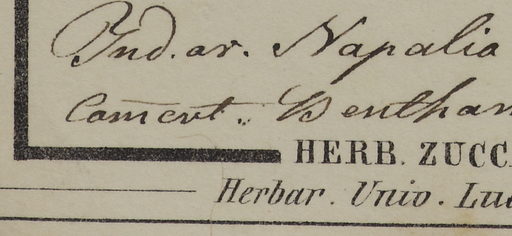 Ind. or. Napalia
Comert. Bentham
HERB. ZUCC
Herbar. Univ. Lud